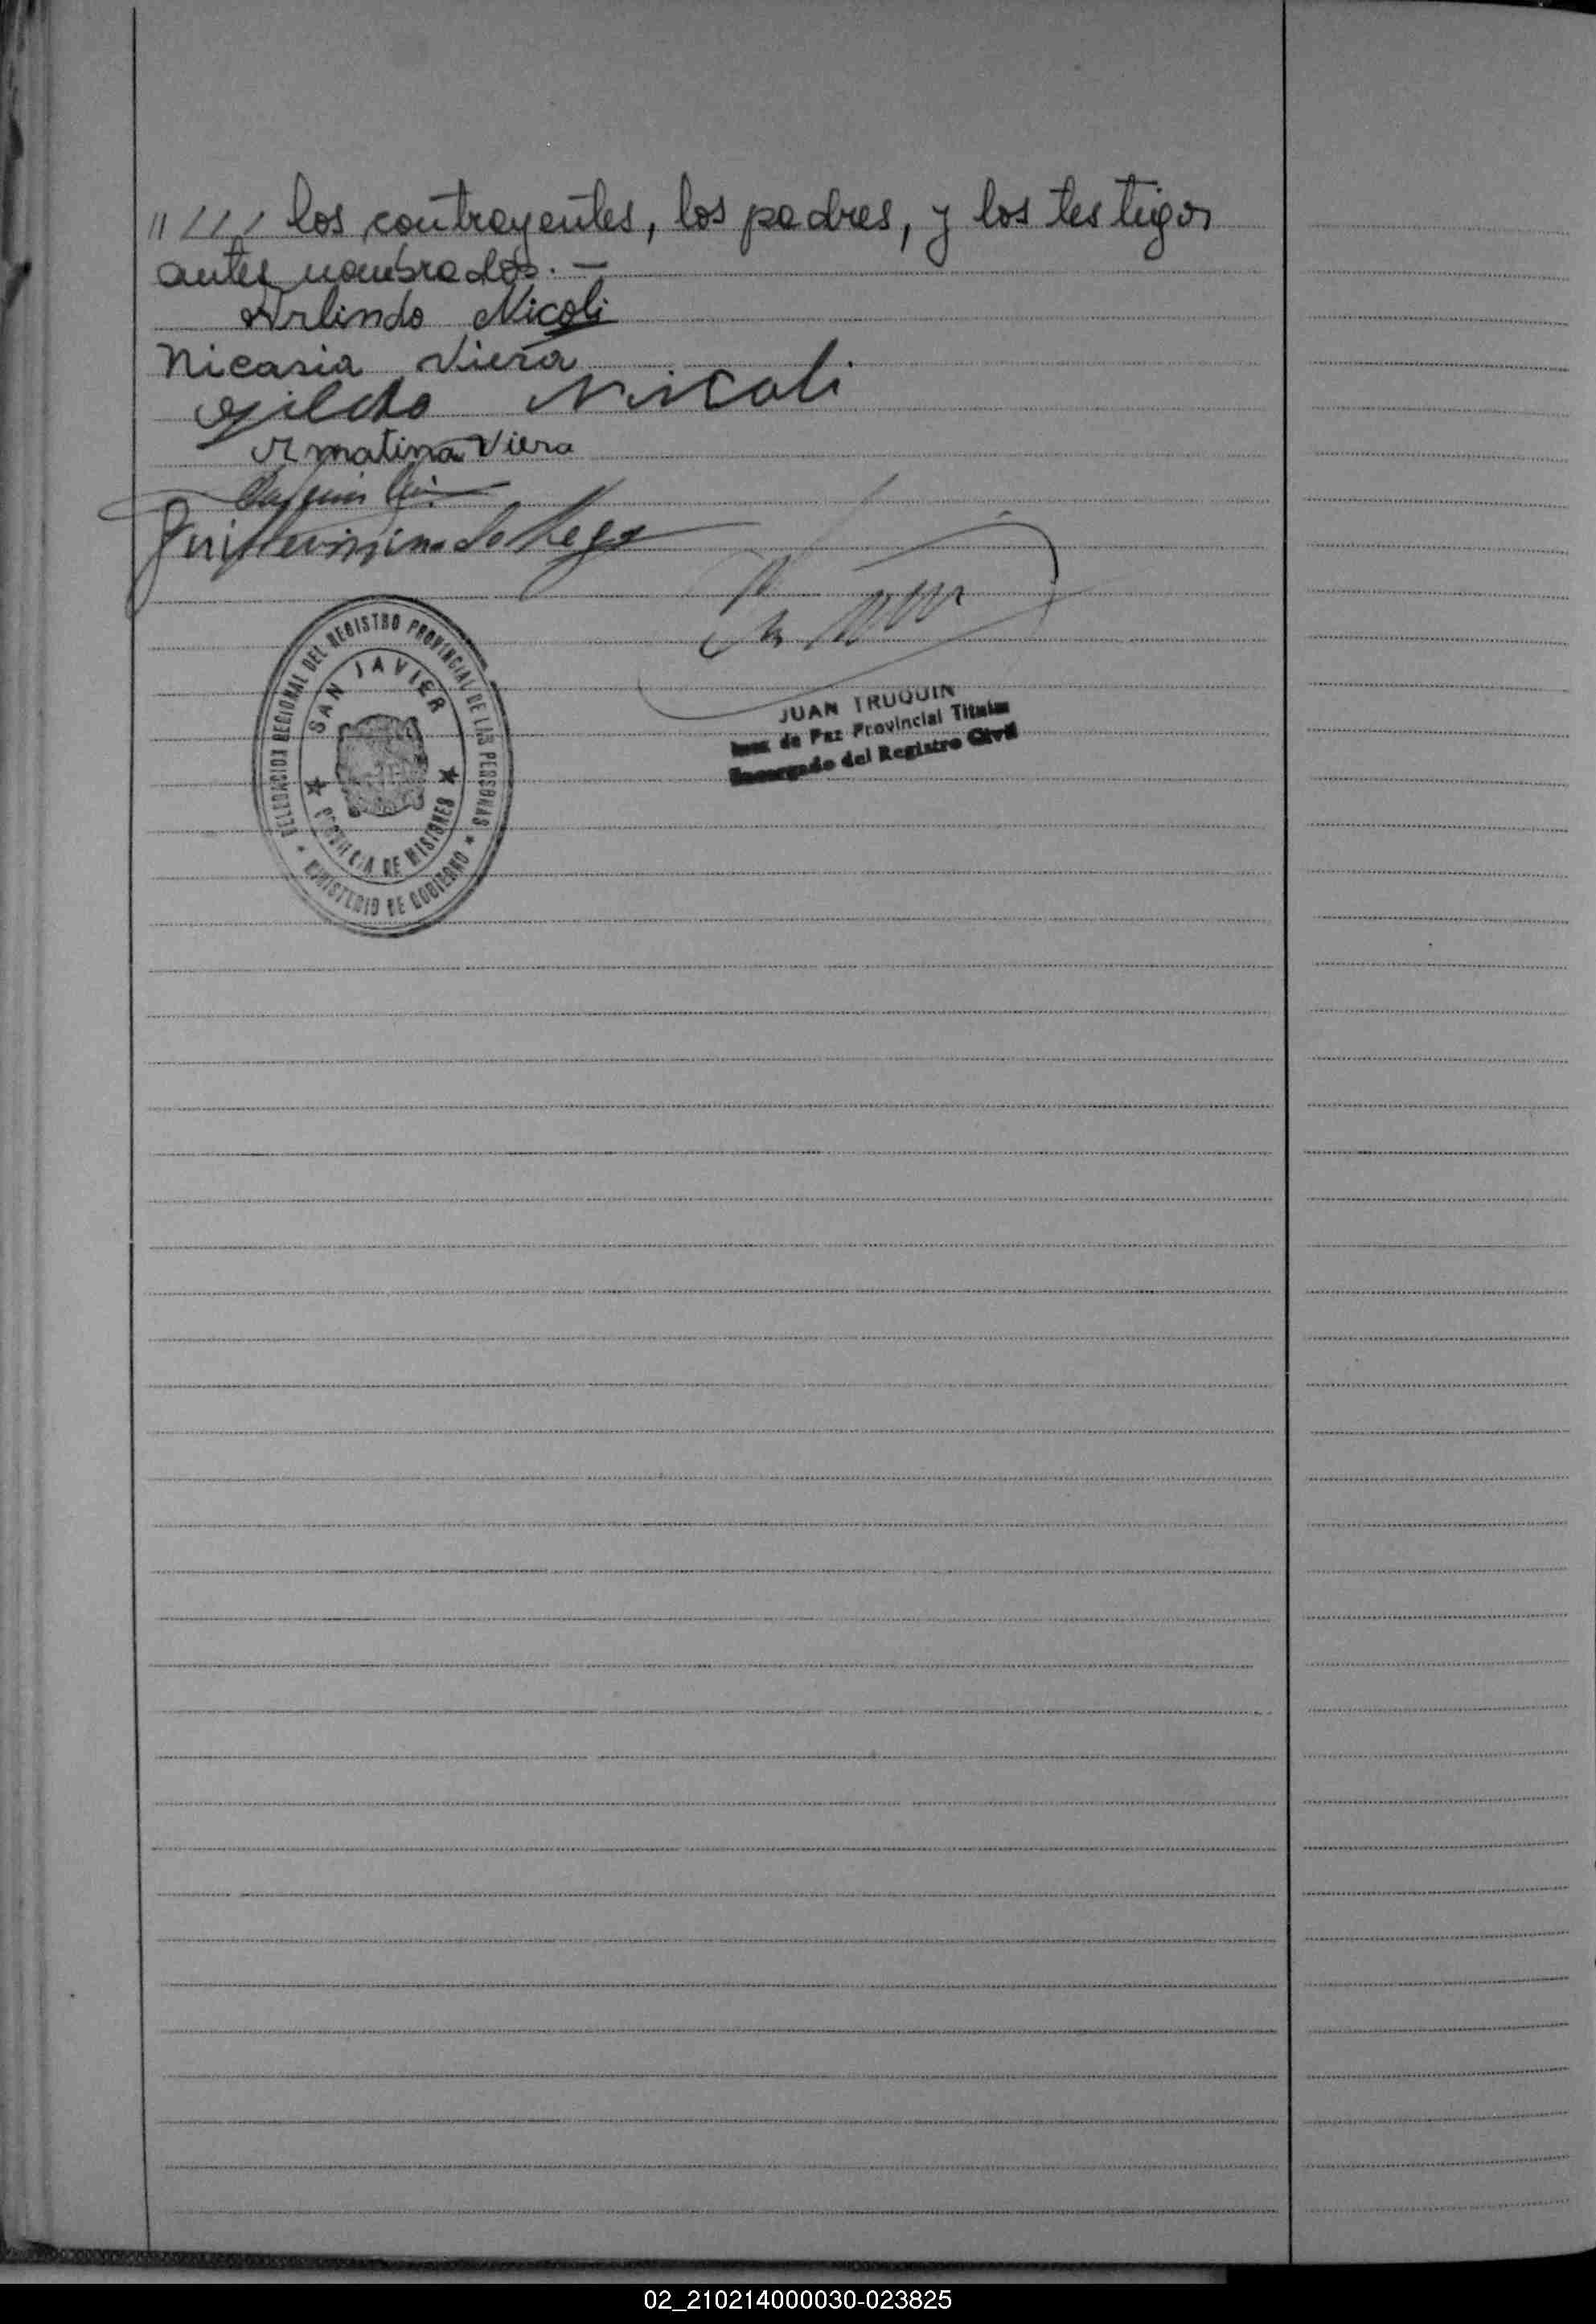 "/// los contrayentes, los padres, y los testigos
antes nombrados. —
Arlindo Nicoli
Nicasia Viera
Gildo Nicoli
Amatina Viera
do Rego
DELEGACION REGIONAL DEL REGISTRO PROVINCIAL DE LAS PERSONAS
SAN JAVIER
PROVINCIA DE MISIONES
* MINISTERIO DE GOBIERNO *
JUAN TRUQUIN
Juez de Paz Provincial Titular
Encargado del Registro Civil
02_210214000030-023825